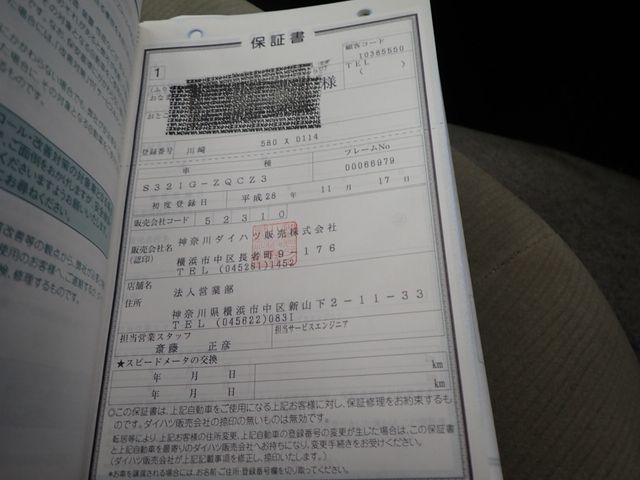 保証書
1
顧客コード
10385550
TEL
( )
様
登録番号 川崎 580 X 0114
車種 フレームNo
S321G-ZQCZ3 00066979
初度登録日 平成28年 11月 17日
販売会社コード 52310
販売会社名 神奈川ダイハツ販売株式会社
(認印) 横浜市中区長者町9-176
TEL (045261)1452
店舗名 法人営業部
住所 神奈川県横浜市中区新山下2-11-33
TEL (045622)0831
担当営業スタッフ 担当サービスエンジニア
斎藤 正彦
★スピードメータの交換
年 月 日 km
年 月 日 km
◎この保証書は、上記自動車をご使用になる上記お客様に対し、保証修理をお約束するものです。ダイハツ販売会社の捺印の無いものは無効です。
転居等により、上記お客様の住所変更、上記自動車の登録番号の変更が生じた場合は、この保証書と上記自動車を最寄りのダイハツ販売会社へお持ちになり、変更手続きをお受けください。
(ダイハツ販売会社が上記記載事項を修正し、捺印いたします。)
*お車を譲渡される場合には、お名前・ご住所・登録番号欄を切り取ってください。